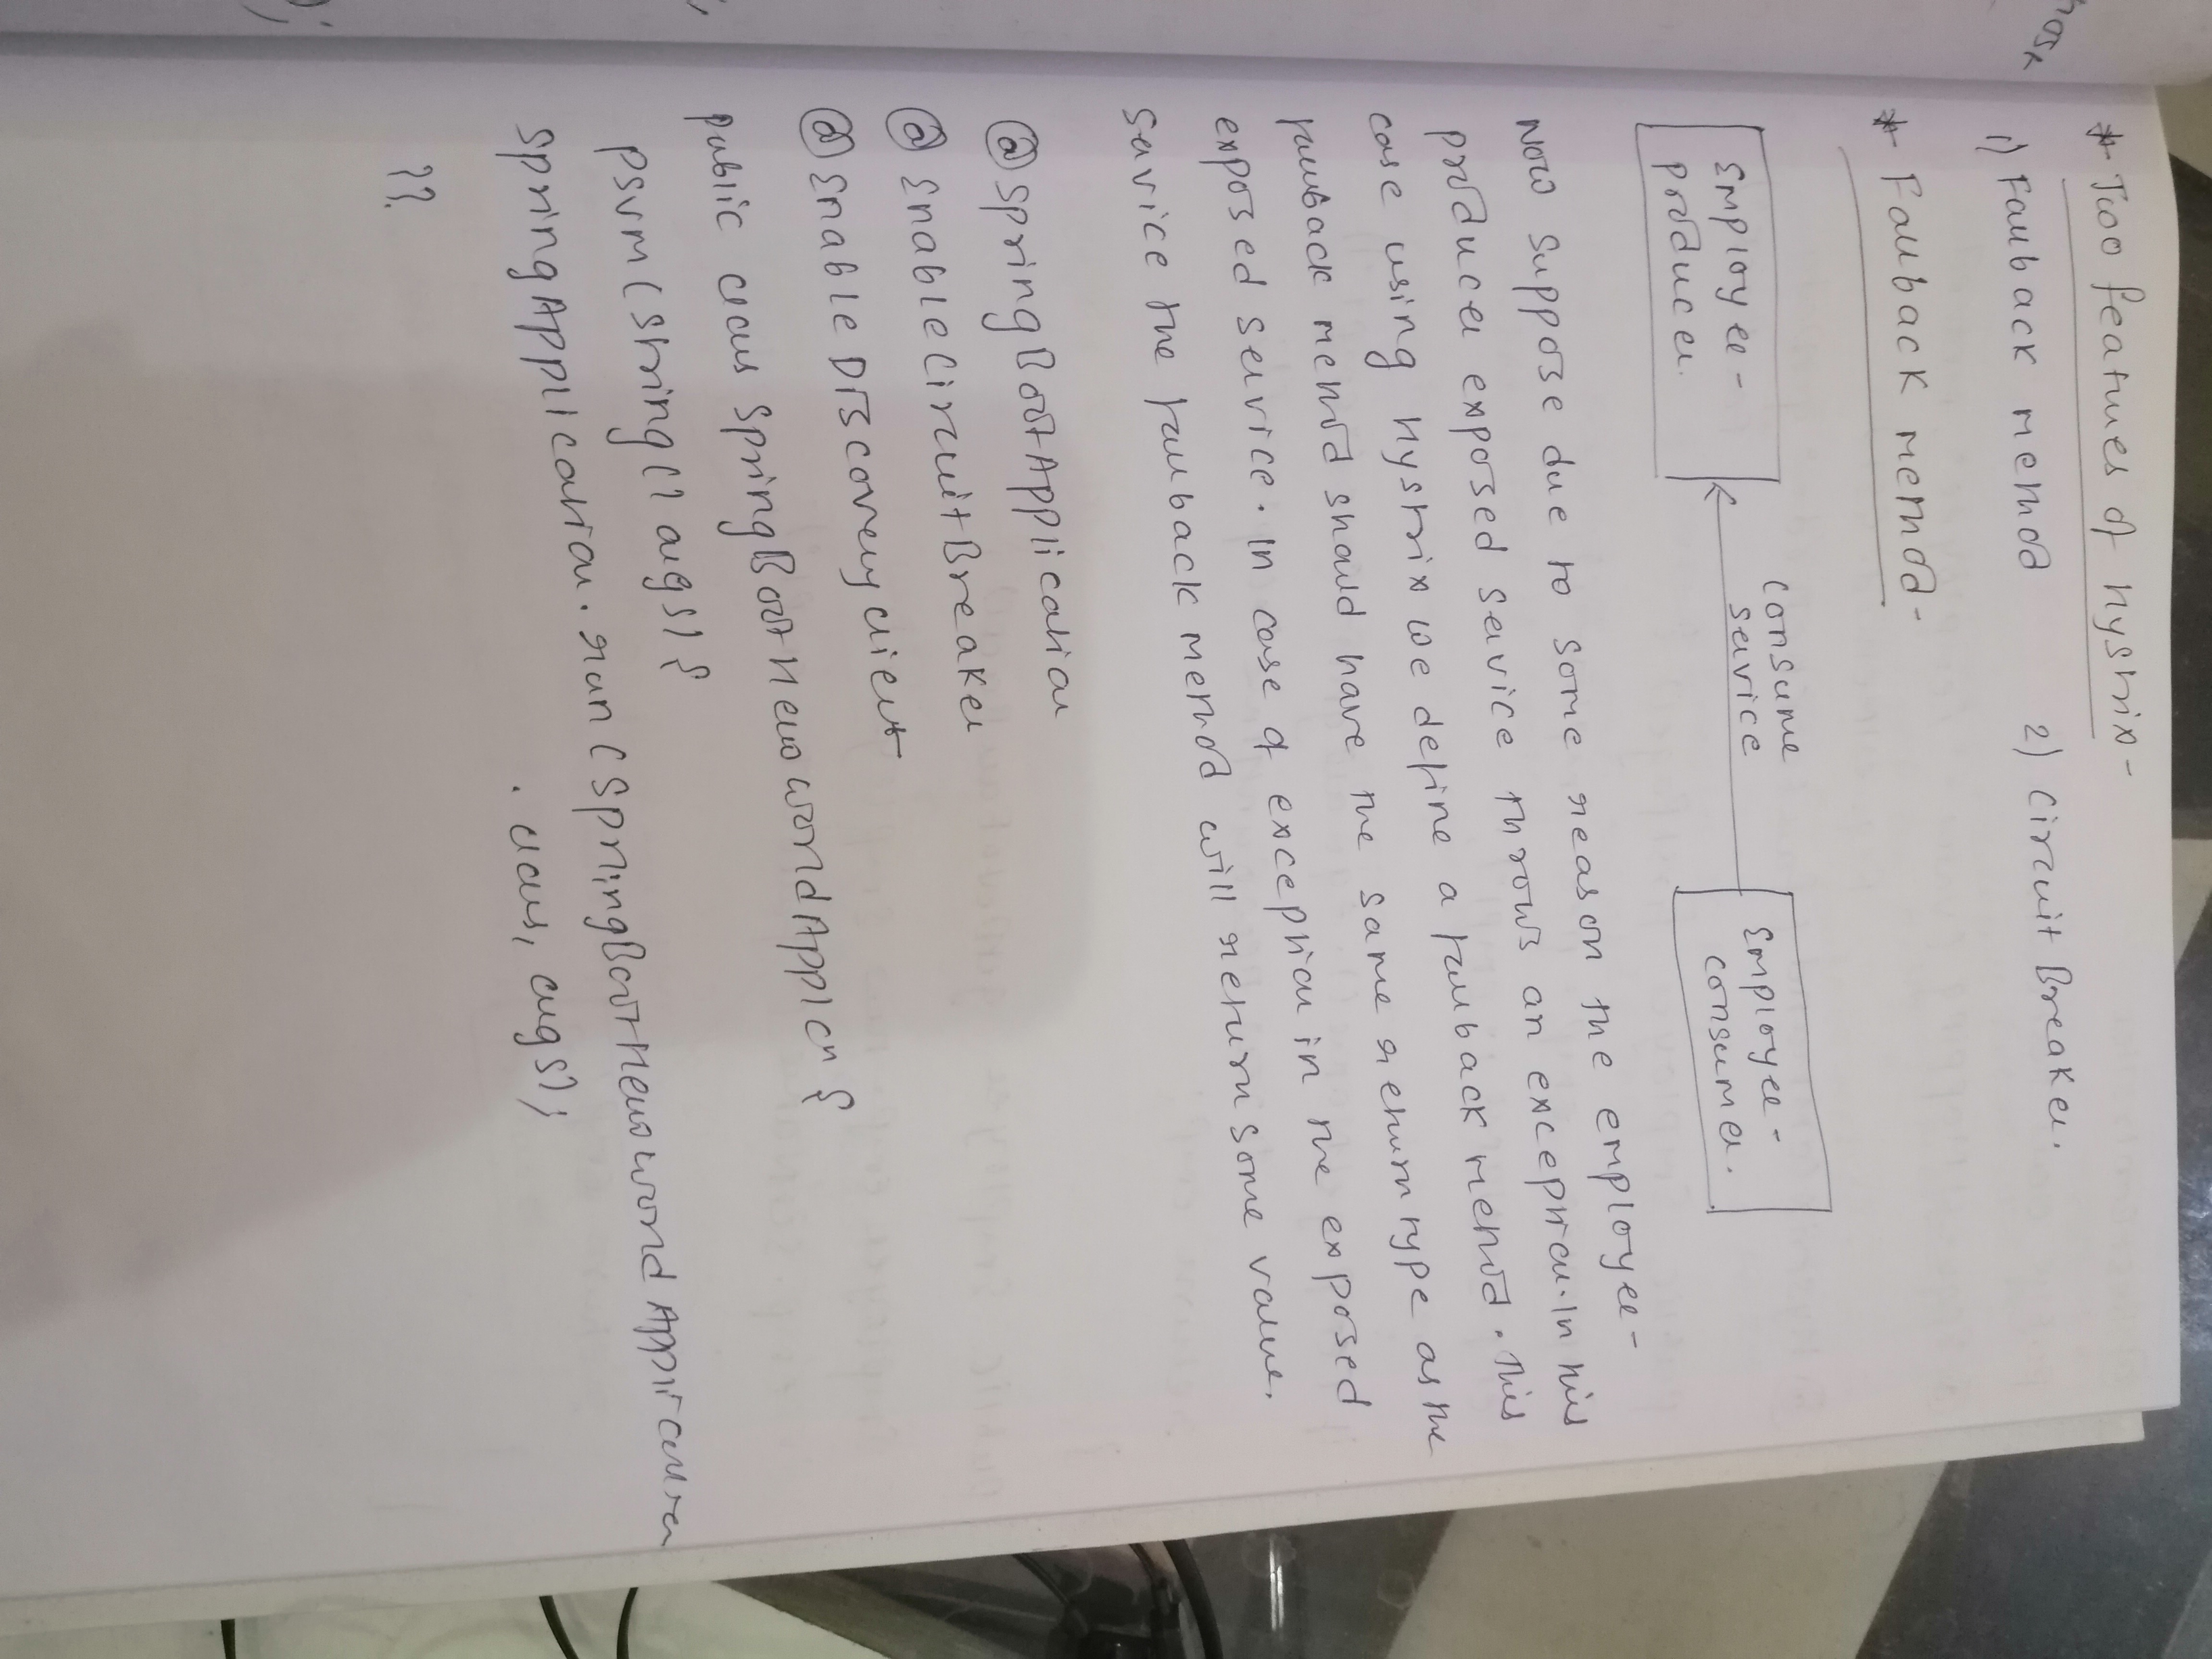 * Two features of hystrix-
1) Fallback method 2) Circuit Breaker.
* Fallback method-
Employee-
producer.
consume
service
Employee-
consumer.
Now suppose due to some reason the employee-
producer exposed service throws an exception. In this
case using hystrix we define a fallback method. This
fallback method should have the same return type as the
exposed service. In case of exception in the exposed
service the fallback method will return some value.
@SpringBootApplication
@EnableCircuitBreaker
@EnableDiscoveryClient
public class SpringBootHelloWorldApplicn {
psvm(String[] args) {
SpringApplication.run(SpringBootHelloWorldApplication
.class, args);
}}